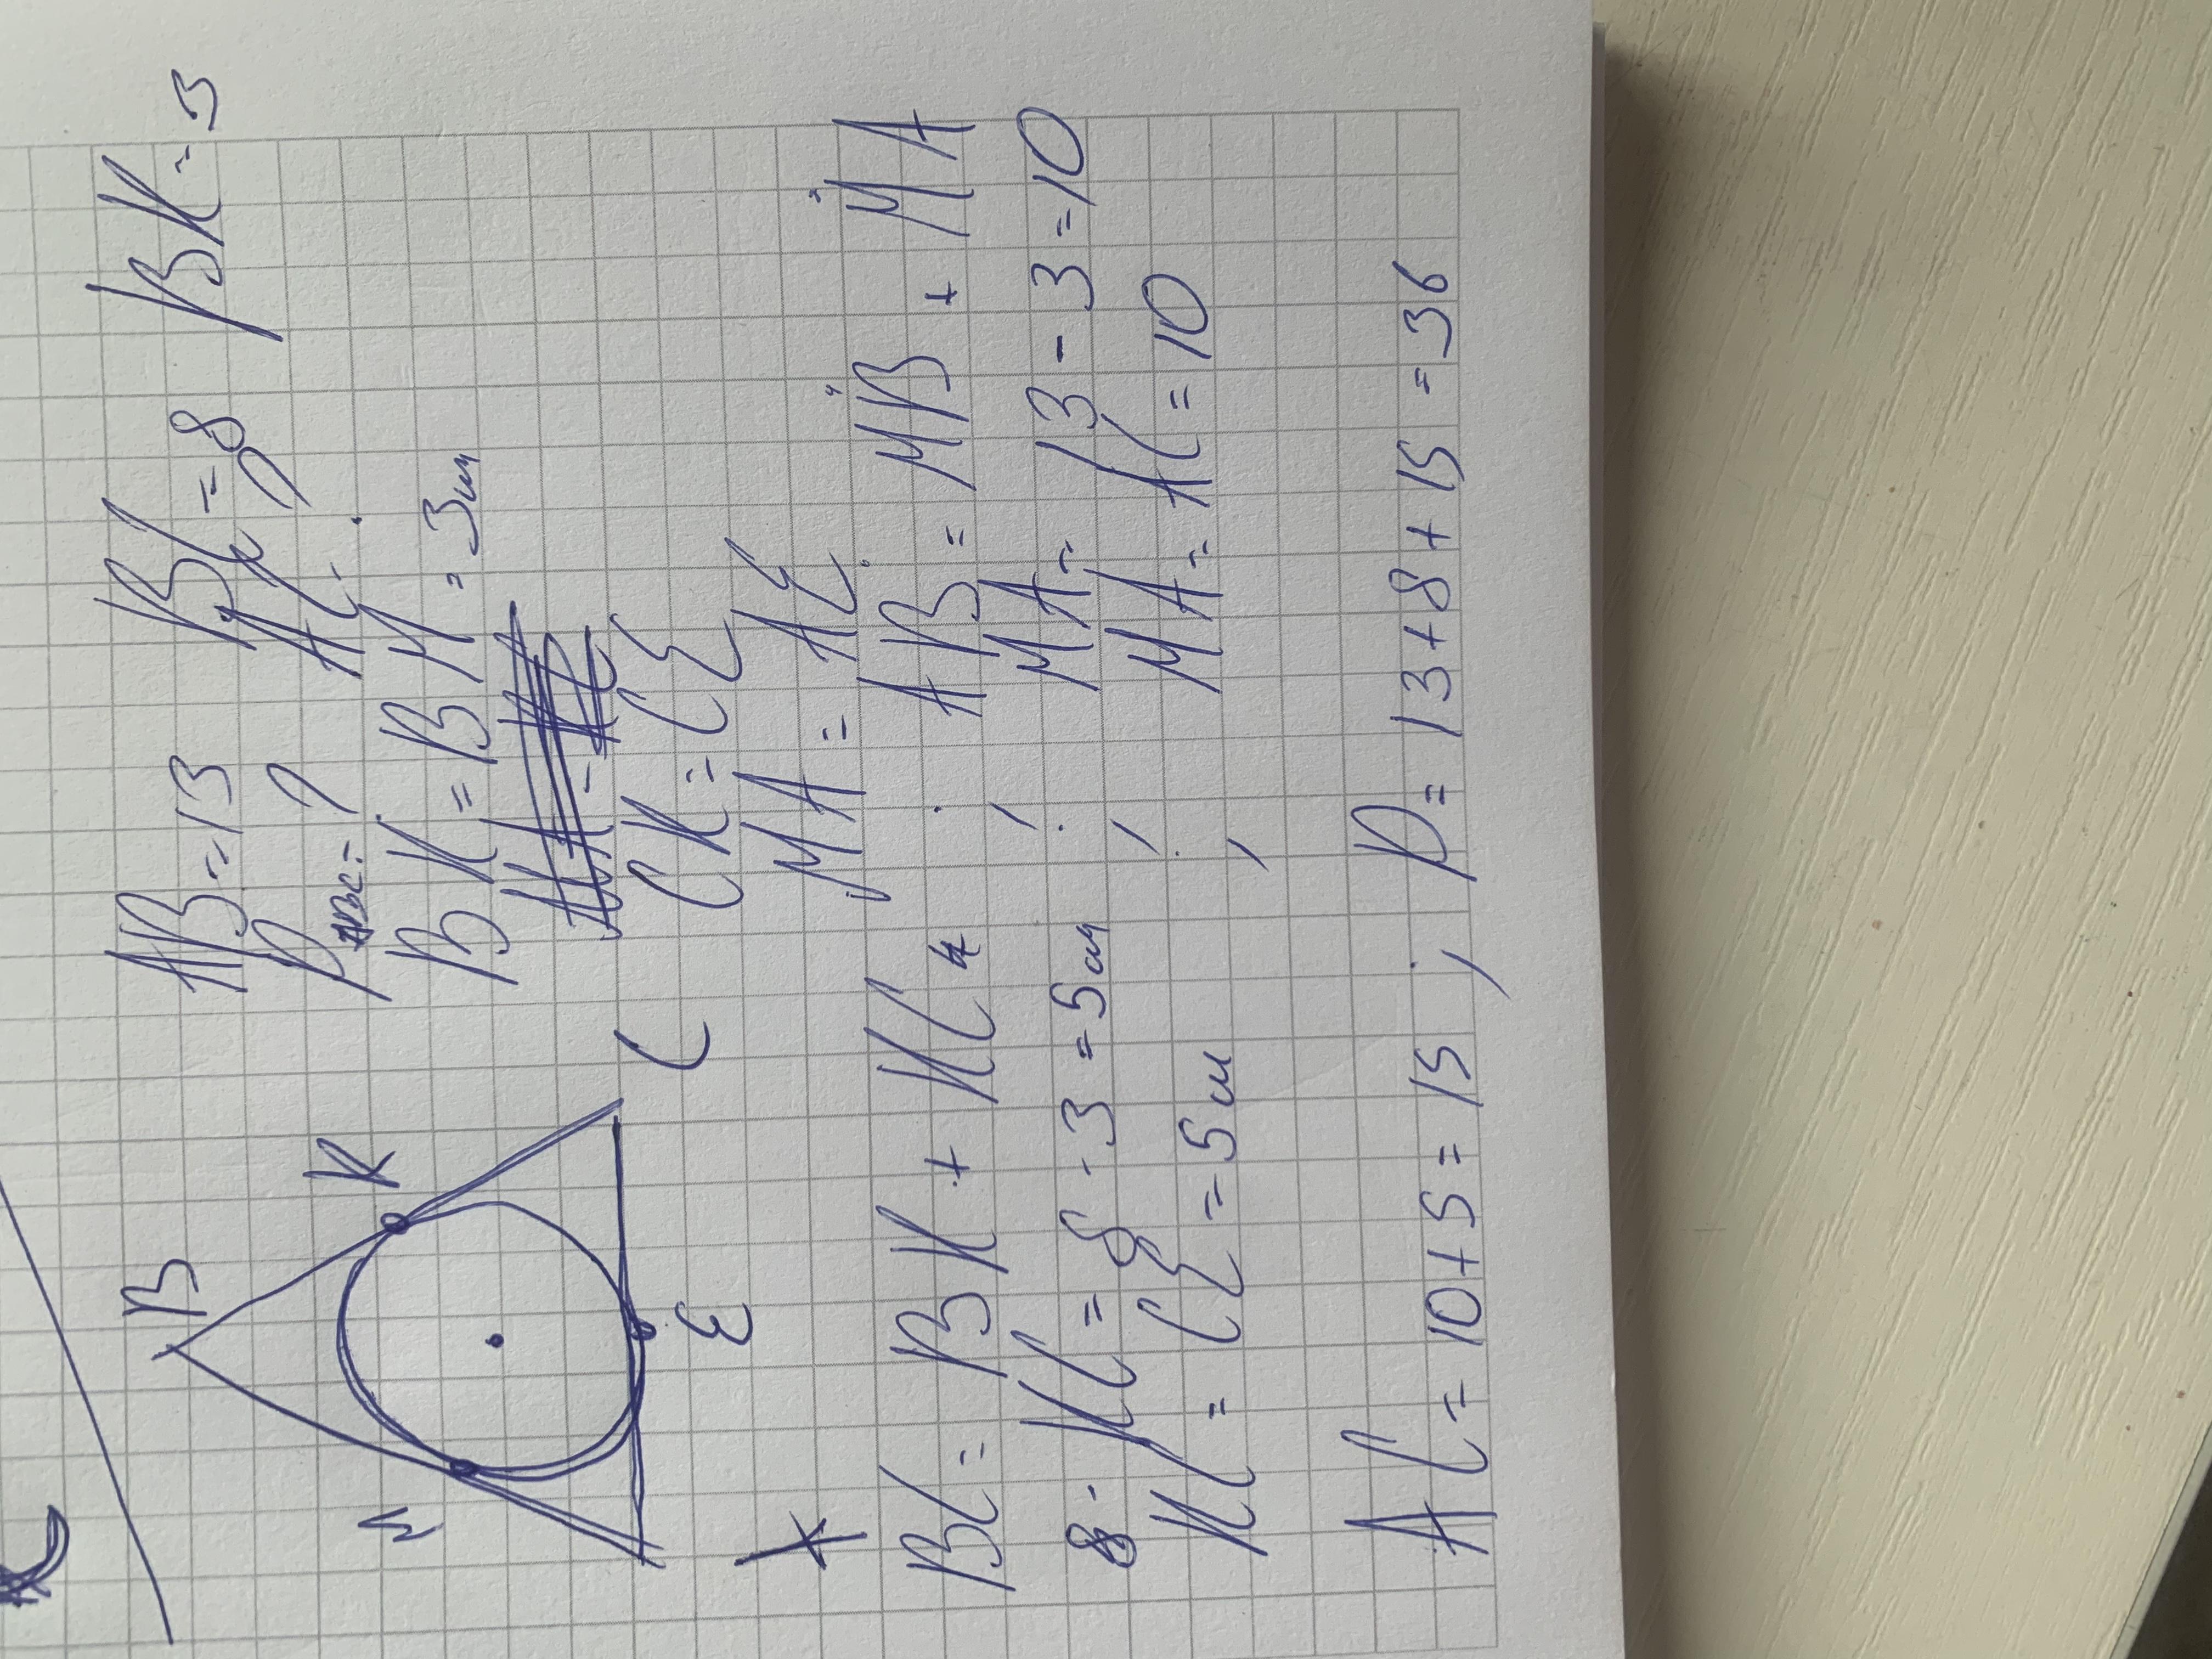 AB=13 BC=8 BK=3
P ABC=? AC-?
BK=BM=3см
CK=CE
MA=AE
B
K
M
C
E
A
BC=BK+KC ; AB=MB+MA
KC=8-3=5см ; MA=13-3=10
KC=CE=5см ; MA=AC=10
AC=10+5=15 ; P=13+8+15=36